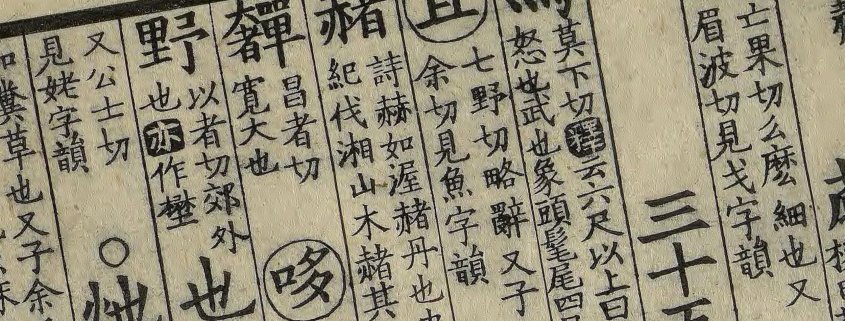 亡果切么麽細也又
眉波切見戈字韻
三十
馬
莫下切釋云六尺以上曰
怒也武也象頭髦尾四
且
七野切略辭又子
余切見魚字韻
赭
詩赫如渥赭丹也
紀伐湘山木赭其
奲
昌者切
寬大也
哆
野
以者切郊外
也亦作壄
也
又公土切
見姥字韻
○灺
和糞草也又子余